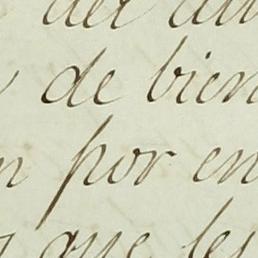 del
de bien
por en
que les